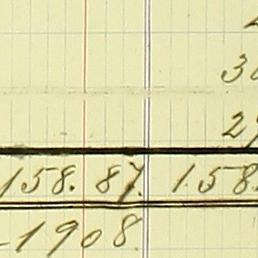 30
29
158. 87. 158.
1908.